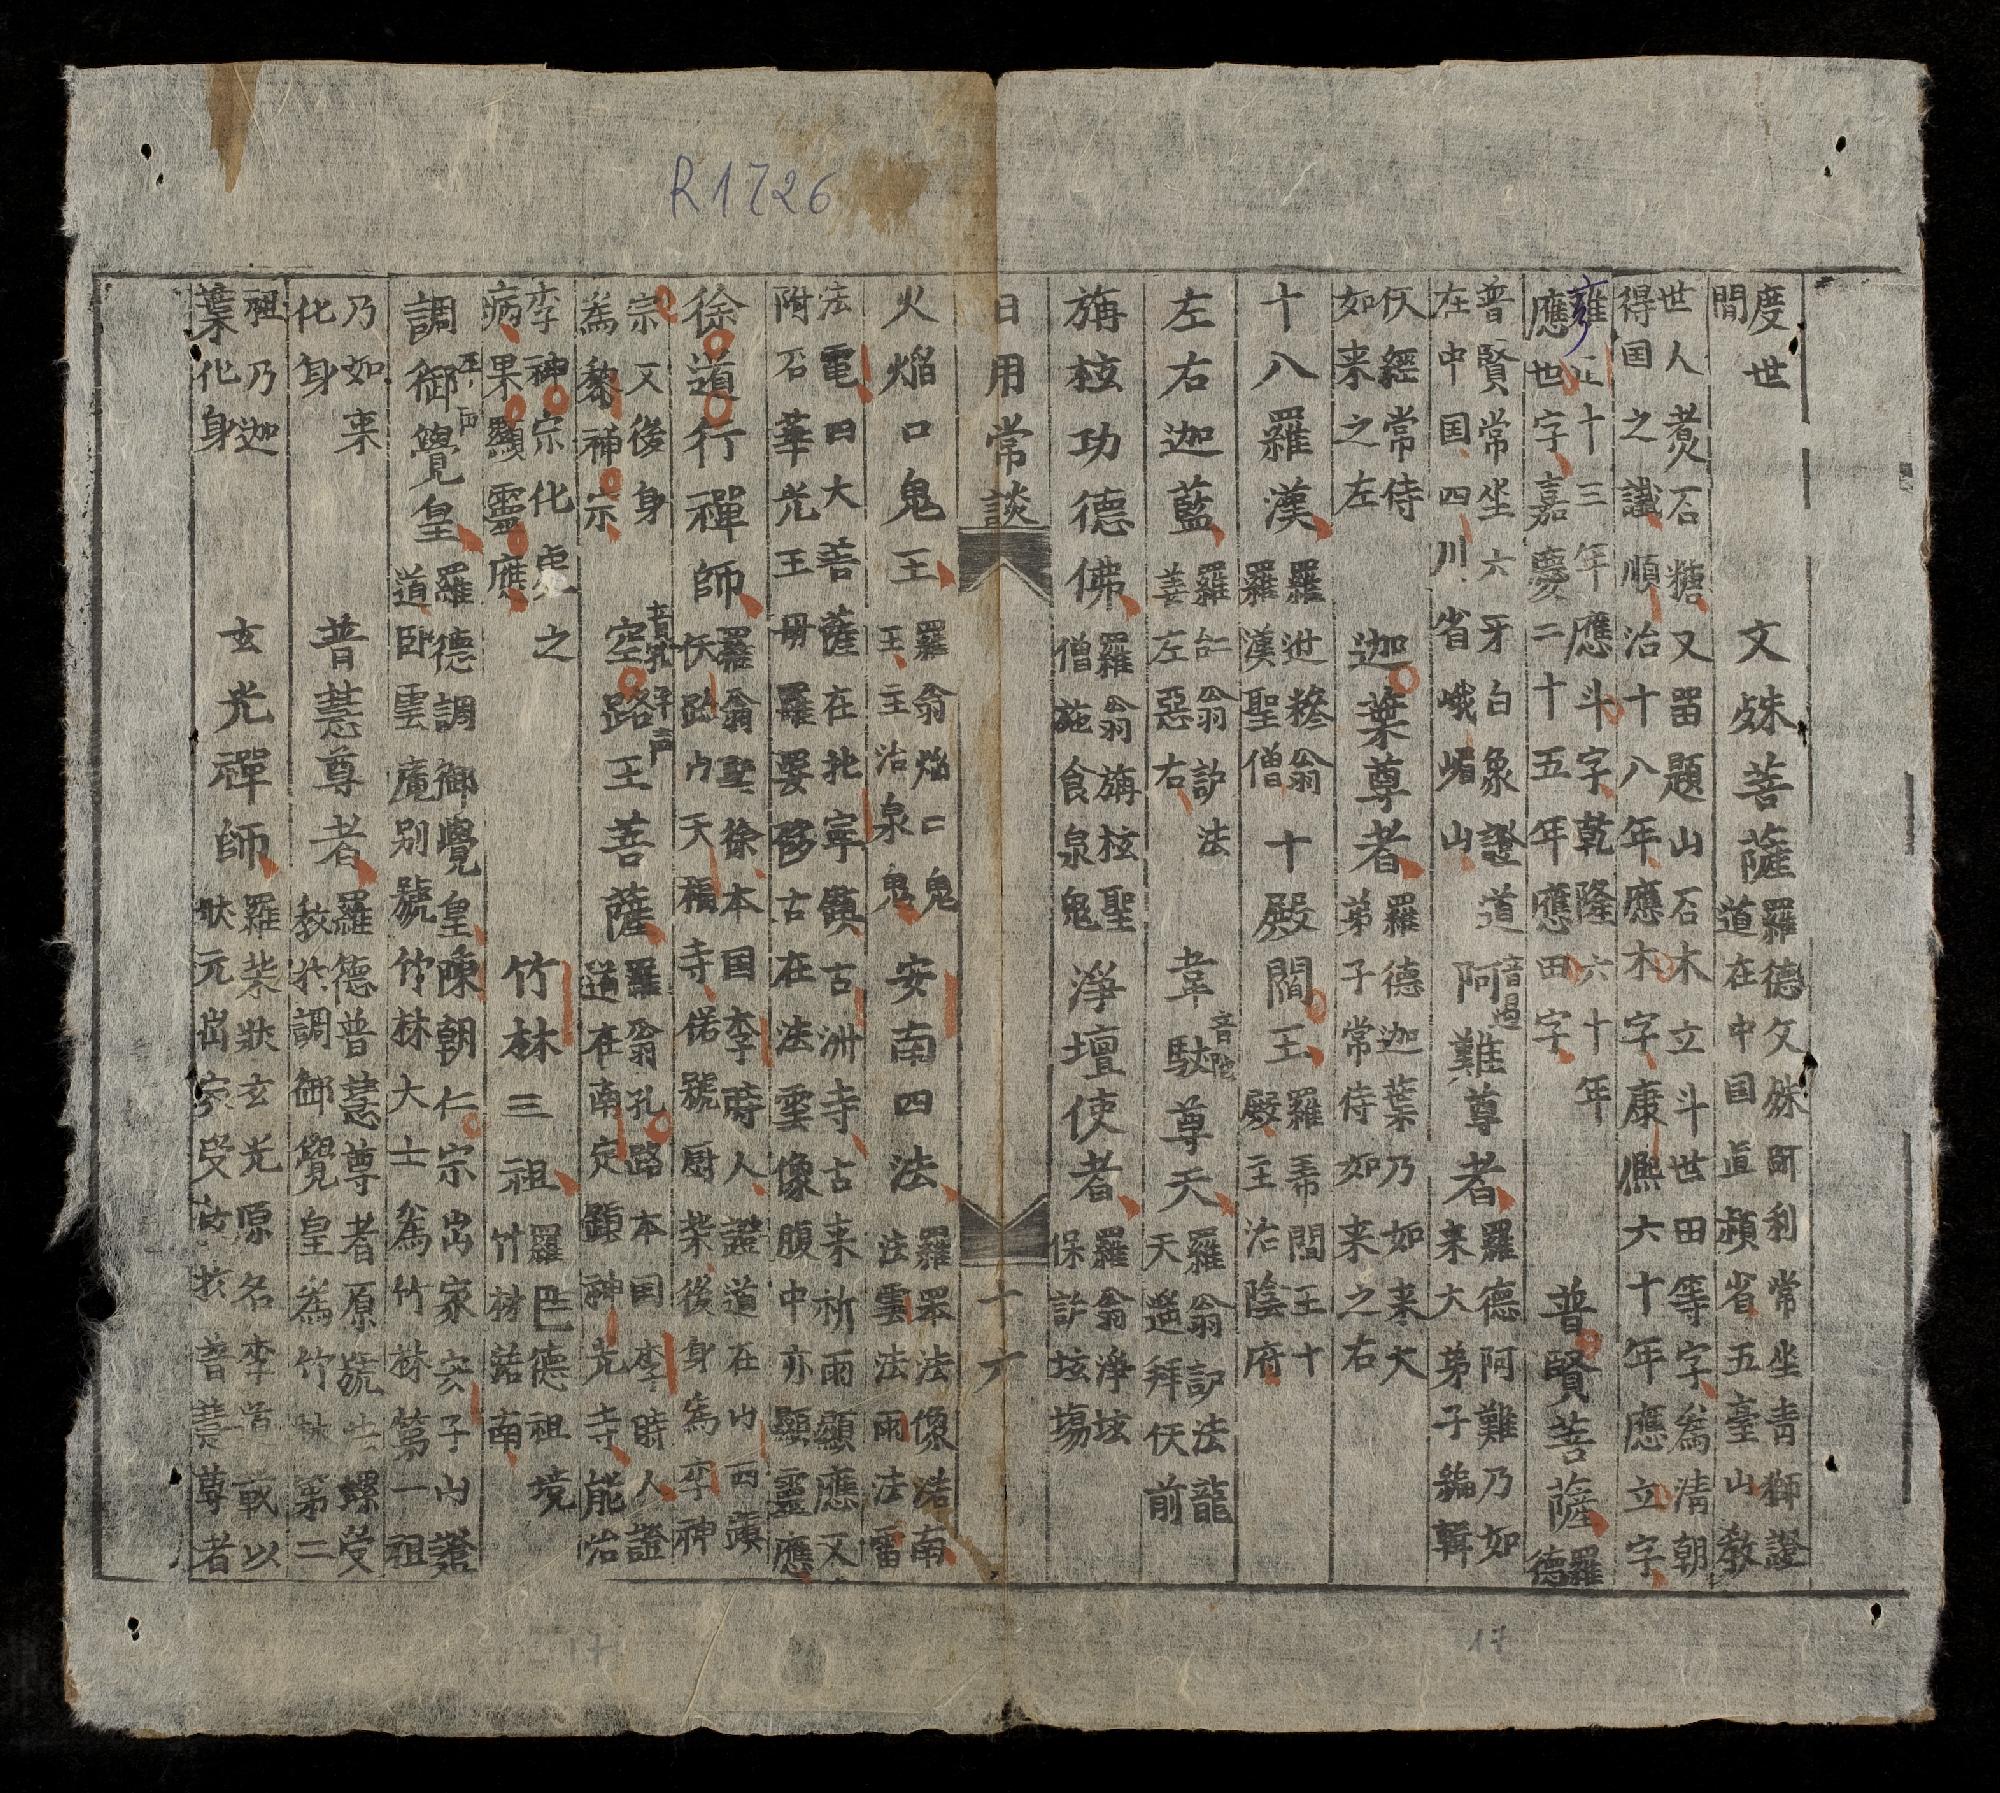 R1726
度世
間
文殊菩薩
羅德文殊師利常坐青獅證
道在中国直𬞟省五臺山教
世人煑石糖又畱題山石木立斗世田等字為清朝
得国之讖順治十八年應木字康熙六十年應立字
雍正十三年應斗字乾隆六十年
應世字嘉慶二十五年應田字
普賢菩薩
羅
德
普賢常坐六牙白象證道
在中国四川省峨嵋山
阿難尊者
羅德阿難乃如
来大弟子編輯
伕經常侍
如来之左
迦葉尊者
羅德迦葉乃如来大
弟子常侍如来之右
十八羅漢
羅迣糝翁
羅漢聖僧
十殿閻王
羅希閻王十
殿主治陰府
左右迦藍
羅仁翁護法
善左惡右
韋馱尊天
羅翁護法龍
天遥拜伕前
旃枝功德佛
羅翁旃枝聖
僧施食泉鬼
淨壇使者
羅翁淨垓
保護垓場
日用常談
十丁
火焰口鬼王
羅翁焰口鬼
王主治泉鬼
安南四法
羅眾法像渃南
法雲法雨法雷
法電四大菩薩在北寧鎮古洲寺古来祈雨顯應又
附石華光王母羅要移古在法雲像腹中亦顯靈應
徐道行禪師
羅翁聖徐本国李時人證道在山西鎮
伕跡山天福寺偌號厨柴後身為李神
宗又後身
為黎神宗
空路王菩薩
羅翁孔路本国李時人證
道在南定顕神光寺能治
李神宗化虎之
病果顯靈應
竹林三祖
羅巴德祖境
竹林渃南
調御覺皇
羅德調御覺皇陳朝仁宗出家安子山證
道卧雲庵别號竹林大士為竹林第一祖
乃如来
化身
普慧尊者
羅德普慧尊者原號法螺受
教於調御覺皇為竹林第二
祖乃迦
葉化身
玄光禪師
羅柴狀玄光原名李道載以
狀元出家受教於普慧尊者
17